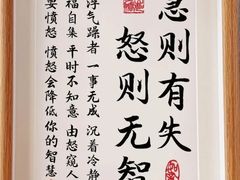 急则有失
怒则无智
浮气躁者 一事无成 沉着冷静
福自集 平时不知意 由怒窥人
要愤怒 愤怒会降低你的智慧